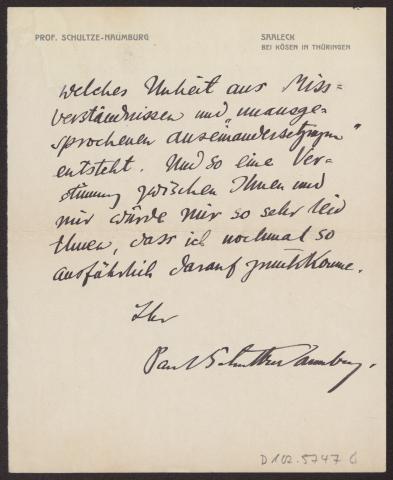 PROF. SCHULTZE-NAUMBURG
SAALECK
BEI KÖSEN IN THÜRINGEN
welches Unheil aus Miss-
verständnissen und „unausge-
sprochenen Auseinandersetzungen"
entsteht. Und so eine Ver-
stimmung zwischen Ihnen und
mir würde mir so sehr leid
thuen, dass ich nochmal so
ausführlich darauf zurückkomme.
Ihr
Paul Schultze Naumburg.
D 102.5747